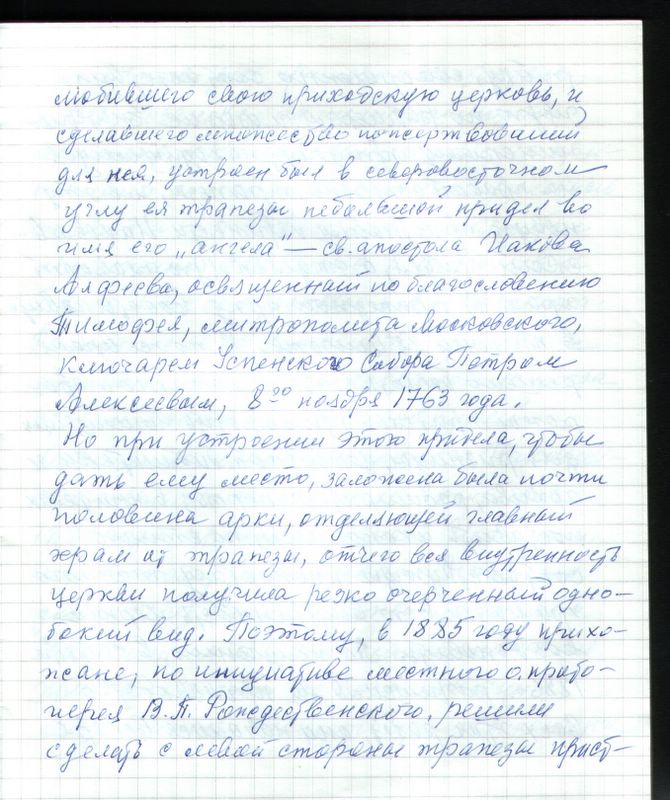 любившего свою приходскую церковь, и
сделавшего множество пожертвований
для нея, устроен был в северовосточном
углу ея трапезы небольшой придел во
имя его „ангела" — св. апостола Иакова
Алфеева, освященный по благословению
Тимофея, митрополита Московского,
ключарем Успенского Собора Петром
Алексеевым, 8го ноября 1763 года.
Но при устроении этого придела, чтобы
дать ему место, заложена была почти
половина арки, отделяющей главный
храм от трапезы, отчего вся внутренность
церкви получила резко очерченный одно-
бокий вид. Поэтому, в 1885 году прихо-
жане, по инициативе местного о. прото-
иерея В. П. Рождественского, решили
сделать с левой стороны трапезы прист-